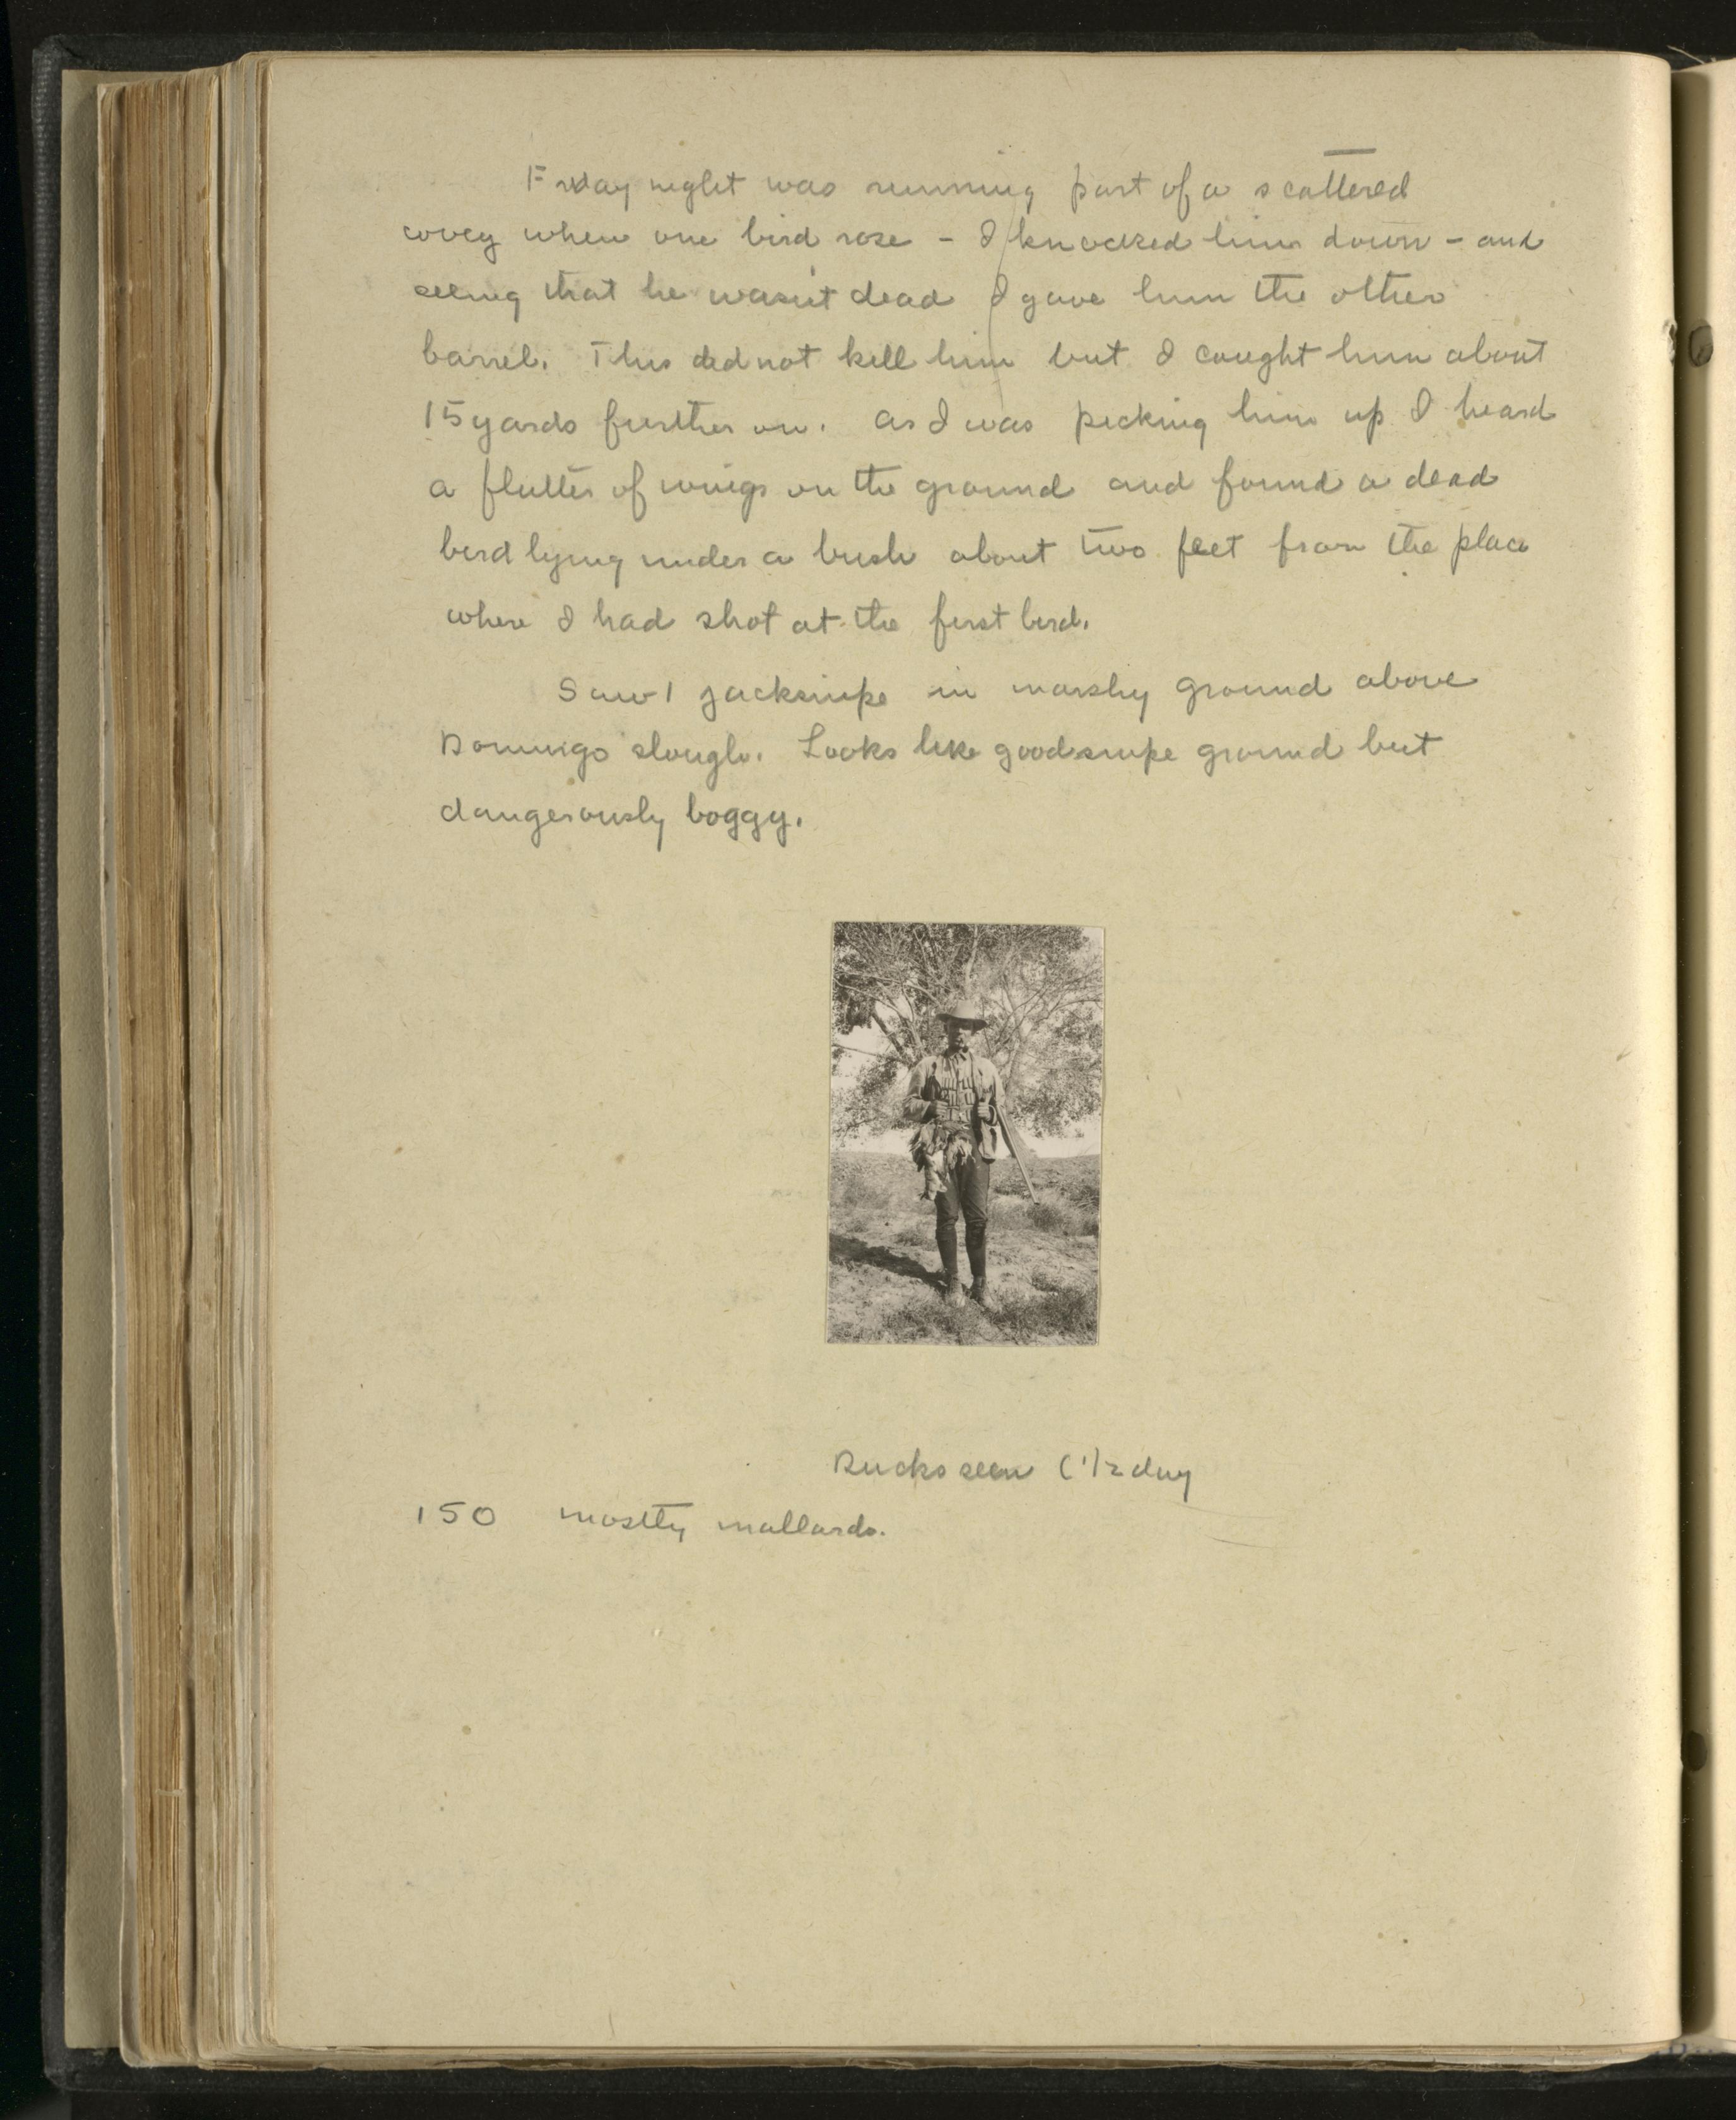 Friday night was running part of a scattered
covey when one bird rose - I knocked him down - and
seeing that he wasn't dead I gave him the other
barrel. This did not kill him but I caught him about
15 yards further on. As I was picking him up I heard
a flutter of wings on the ground and found a dead
bird lying under a bush about two feet from the place
where I had shot at the first bird.
Saw 1 jacksnipe in marshy ground above
Domingo slough. Looks like good snipe ground but
dangerously boggy.
Ducks seen (1/2 day
150 mostly mallards.